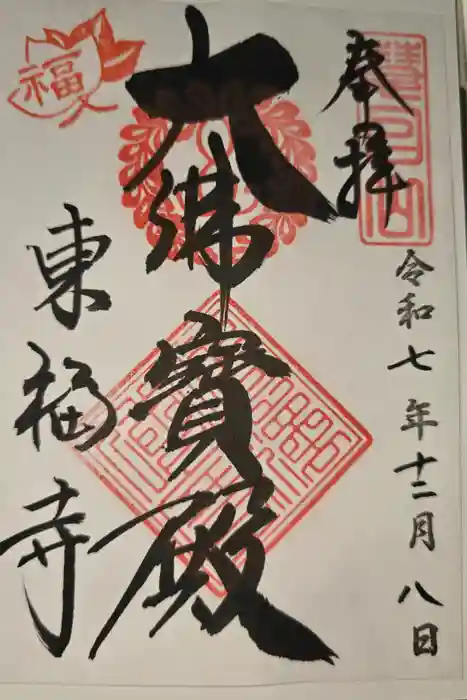 奉拝
令和七年十二月八日
大佛寶殿
東福寺
福